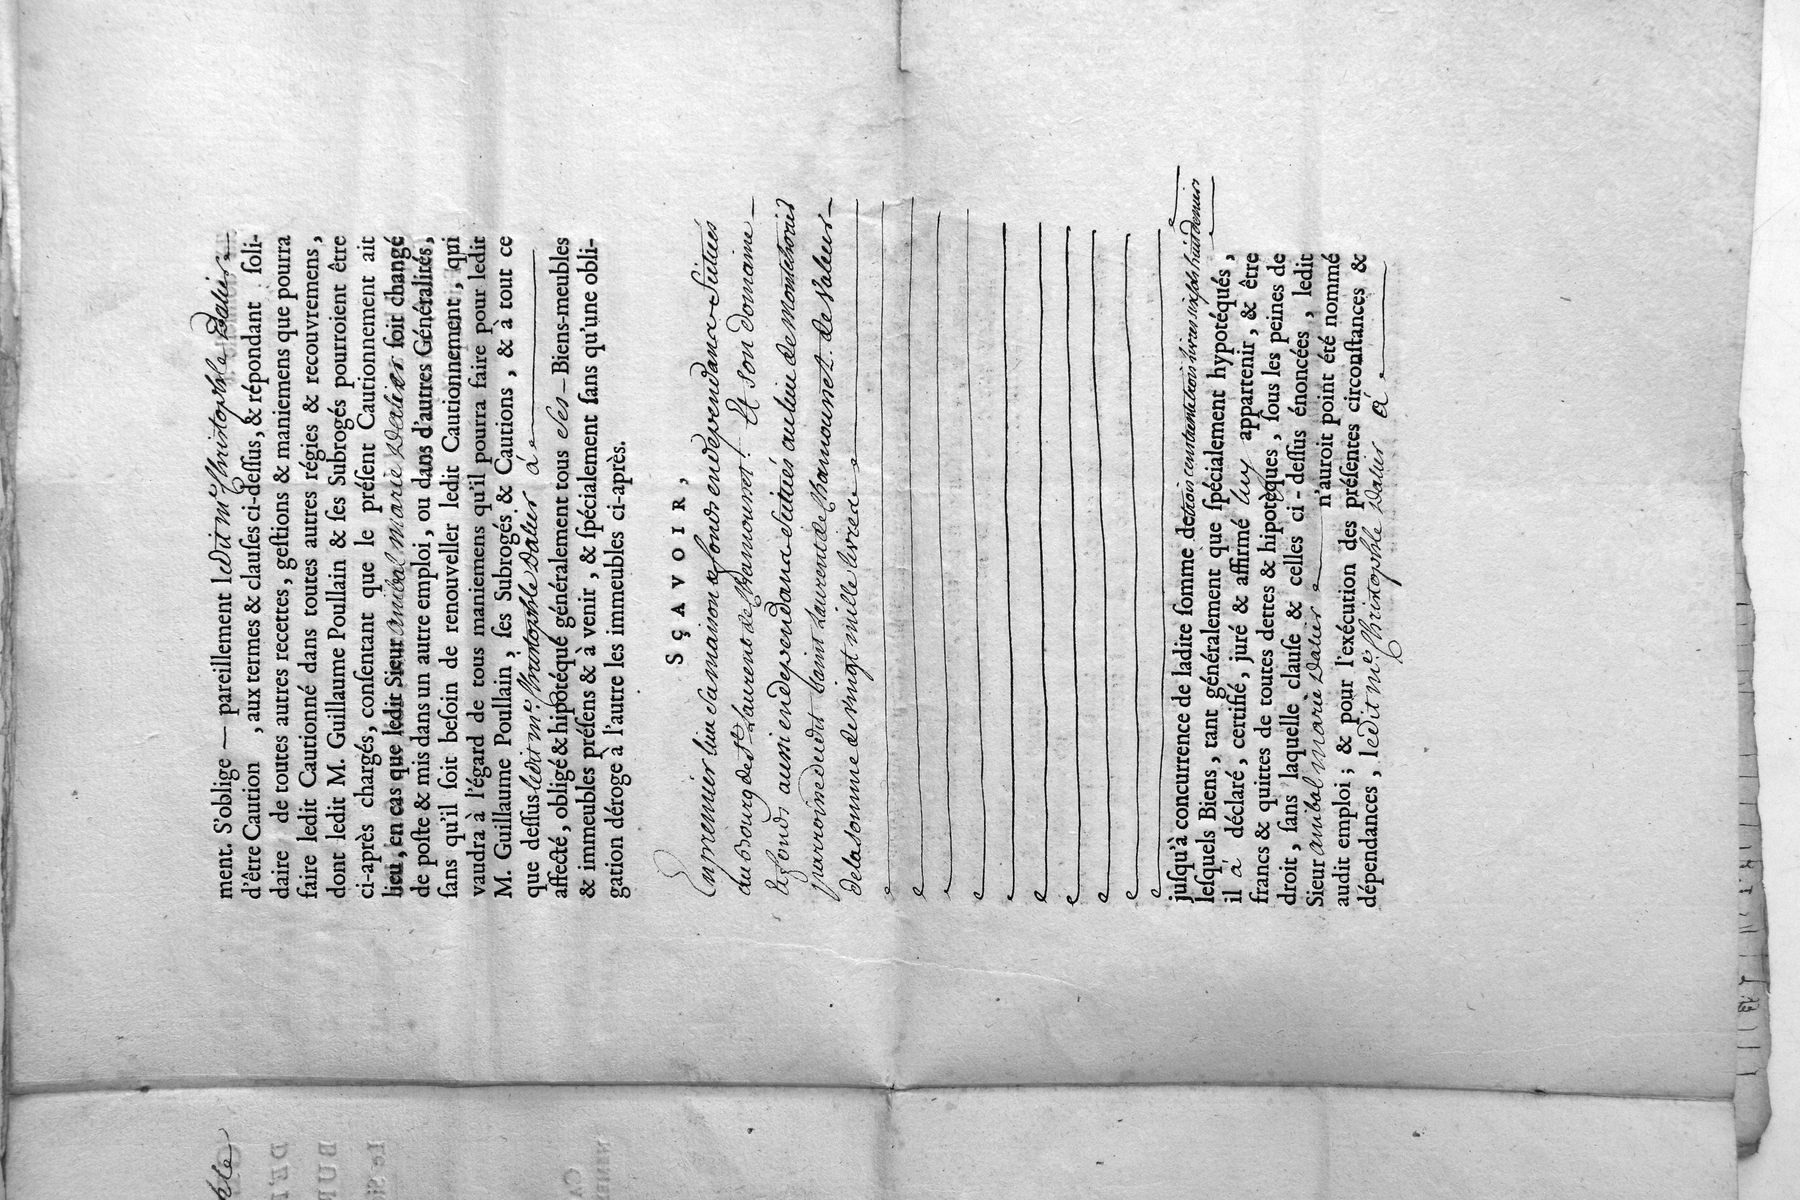 ment. S'oblige — pareillement ledit me. Christophle Dalier —
d'être Caution , aux termes & clauſes ci-deſſus, & répondant ſoli-
daire de toutes autres recettes, geſtions & maniemens que poura
faire ledit Cautionné dans toutes autres régies & recouvremens ,
dont ledit M. Guillaume Poullain & ſes Subrogés pourroient être
ci-après chargés, conſentant que le préſent Cautionnement ait
lieu, en cas que ledit Sieur anibal marie Dalier ſoit changé
de poſte & mis dans un autre emploi, ou dans d'autres Généralités,
ſans qu'il ſoit beſoin de renouveller ledit Cautionnement , qui
vaudra à l'égard de tous maniemens qu'il pourra faire pour ledit
M. Guillaume Poullain , ſes Subrogés & Cautions , & à tout ce
que deſſus ledit me. Christophle Dalier á
affecté, obligé & hipotéqué généralement tous ses – Biens-meubles
& immeubles préſens & à venir , & ſpécialement ſans qu'une obli-
gation déroge à l'autre les immeubles ci-après.
SÇAVOIR,
En premier lieu sa maison & fonds en dependance Situés
au Bourg de St. Laurent de Et son domaine —
& fonds aussi en dependance situés au lieu de
parroisse dudit Saint Laurent de de valeur —
de la somme de vingt mille livres
juſqu'à concurrence de ladite ſomme de trois cent trente trois livres six sols huit deniers
leſquels Biens , tant généralement que ſpécialement hypotéqués ,
il á déclaré , certifié, juré & affirmé luy appartenir , & être
francs & quittes de toutes dettes & hipotèques , ſous les peines de
droit , ſans laquelle clauſe & celles ci - deſſus énoncées , ledit
Sieur anibal marie Dalier n'auroit point été nommé
audit emploi ; & pour l'exécution des préſentes circonſtances &
dépendances , ledit me. Christophle Dalier á
phle